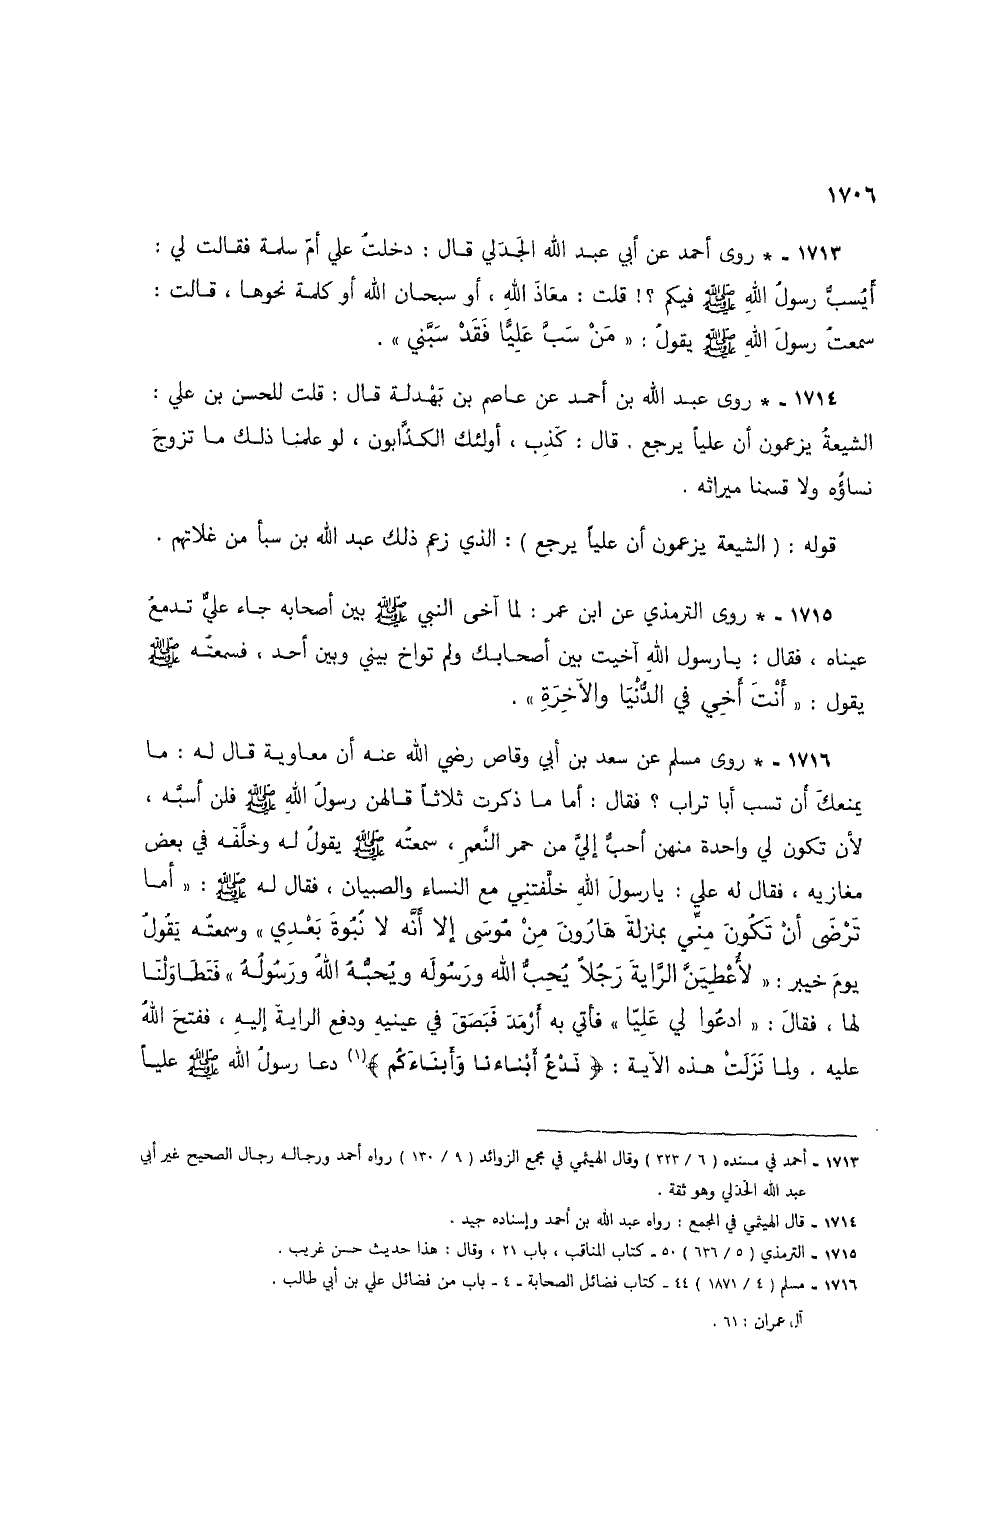 ١٧٠٦
١٧١٣ - * روى أحمد عن أبي عبـد الله الجَـدَلي قـال : دخلتُ علي أمّ سلمـة فقـالت لي :
أيُسبُّ رسولُ اللهِ ﷺ فيكم ؟! قلت : معَاذَ اللهِ ، أو سبحـان الله أو كلمـة نحوهـا ، قـالت :
سمعتُ رسولَ اللهِ ﷺ يقولُ : « مَنْ سَبَّ عَلِيًّا فَقَدْ سَبَّني » .
١٧١٤ - * روى عبـد الله بن أحمـد عن عـاصم بن بَهْدلـة قـال : قلت للحسن بن علي :
الشيعةُ يزعمون أن علياً يرجع . قال : كَذِب ، أولئك الكـذَّابون ، لو علمنـا ذلـك مـا تزوجَ
نساؤُه ولا قسمنا ميراثه .
قوله : ( الشيعة يزعمون أن علياً يرجع ) : الذي زعم ذلك عبد الله بن سبأ من غلاتهم .
١٧١٥ - * روى الترمذي عن ابن عمر : لما آخى النبي ﷺ بين أصحابه جـاء عليٌّ تـدمعُ
عيناه ، فقال : يـارسول اللهِ آخيت بين أصحـابـك ولم تواخ بيني وبين أحـد ، فسمعتُـه ﷺ
يقول : « أَنْتَ أَخِي في الدُّنْيَا والآخِرَةِ » .
١٧١٦ - * روى مسلم عن سعد بن أبي وقاص رضي الله عنـه أن معـاويـة قـال لـه : مـا
يمنعكَ أن تسب أبا تراب ؟ فقال : أما مـا ذكرت ثلاثـاً قـالهن رسولُ اللهِ ﷺ فلن أسبَّـه ،
لأن تكون لي واحدة منهن أحبُّ إليَّ من حمر النَّعم ، سمعتُه ﷺ يقولُ لـه وخلَّفَـه في بعض
مغازيه ، فقال له علي : يارسولَ اللهِ خلَّفتني مع النساء والصبيان ، فقال لـه ﷺ : « أمـا
تَرْضَى أنْ تَكُونَ مِنّي بمنزلةَ هَارُونَ مِنْ مُوسَى إلا أنَّه لا نُبُوةَ بَعْدِي » وسمعتُـه يَقُولُ
يومَ خيبر : « لأُعْطِيَنَّ الرَّايةَ رَجُلاً يُحِبُّ الله ورَسُولَه ويُحبُّـهُ اللهُ ورَسُولُـهُ » فَتَطَـاوَلْنَـا
لها ، فقالَ : « ادعُوا لي عَلِيّا » فأتي به أرْمَدَ فَبَصَقَ في عينيهِ ودفع الرايـة إليـهِ ، ففتحَ اللهُ
عليه . ولما نَزَلَتْ هـذه الآيـة : ﴿ نَـدْعُ أَبْنـاءنـا وَأبنَـاءَكُم ﴾(١) دعـا رسولُ الله ﷺ عليـاً
١٧١٣ - أحمد في مسنده ( ٦ / ٣٢٣ ) وقال الهيثمي في مجمع الزوائد ( ٩ / ١٣٠ ) رواه أحمد ورجالـه رجال الصحيح غير أبي
عبد الله الجَدَلي وهو ثقة .
١٧١٤ - قال الهيثمي في المجمع : رواه عبد الله بن أحمد وإسناده جيد .
١٧١٥ - الترمذي ( ٥ / ٦٣٦ ) ٥٠ - كتاب المناقب ، باب ٢١ ، وقال : هذا حديث حسن غريب .
١٧١٦ - مسلم ( ٤ / ١٨٧١ ) ٤٤ - كتاب فضائل الصحابة - ٤ - باب من فضائل علي بن أبي طالب .
آل عمران : ٦١ .